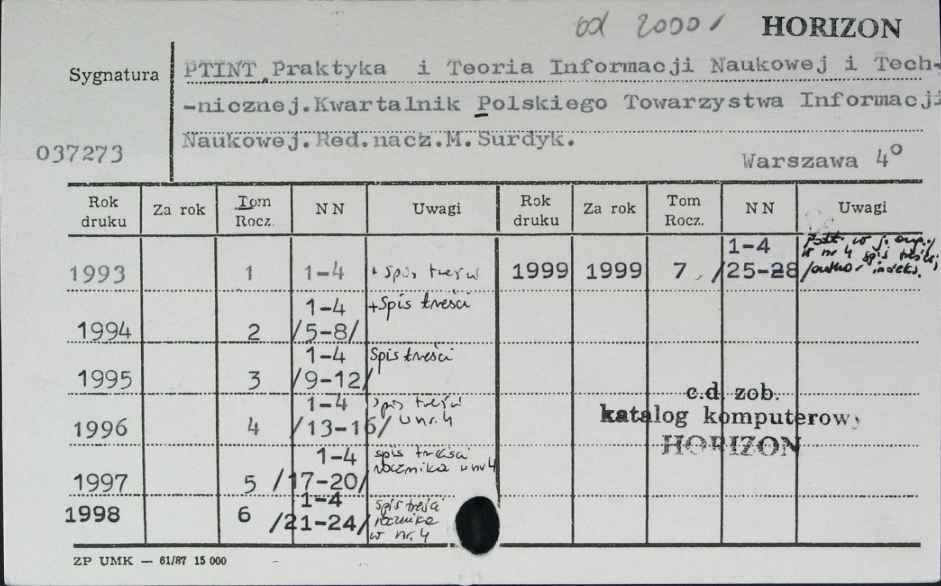 od 2000 r HORIZON
Sygnatura
PTINT Praktyka i Teoria Informacji Naukowej i Tech-
-nicznej.Kwartalnik Polskiego Towarzystwa Informacji
Naukowej.Red.nacz.M.Surdyk.
037273
Warszawa 4°
Rok druku Za rok Tom Rocz. NN Uwagi Rok druku Za rok Tom Rocz. NN Uwagi
1993 1 1-4 + spis treści 1999 1999 7 1-4 /25-28 w nr 4 spis treści,
1994 2 1-4 /5-8/ +Spis treści
1995 3 1-4 /9-12/ Spis treści
1996 4 1-4 /13-16/ spis treści w nr. 4
1997 5 1-4 /17-20/ spis treści rocznika w nr 4
1998 6 1-4 /21-24/ spis treści rocznika w nr. 4
c.d. zob.
katalog komputerowy
HORIZON
ZP UMK — 61/87 15 000